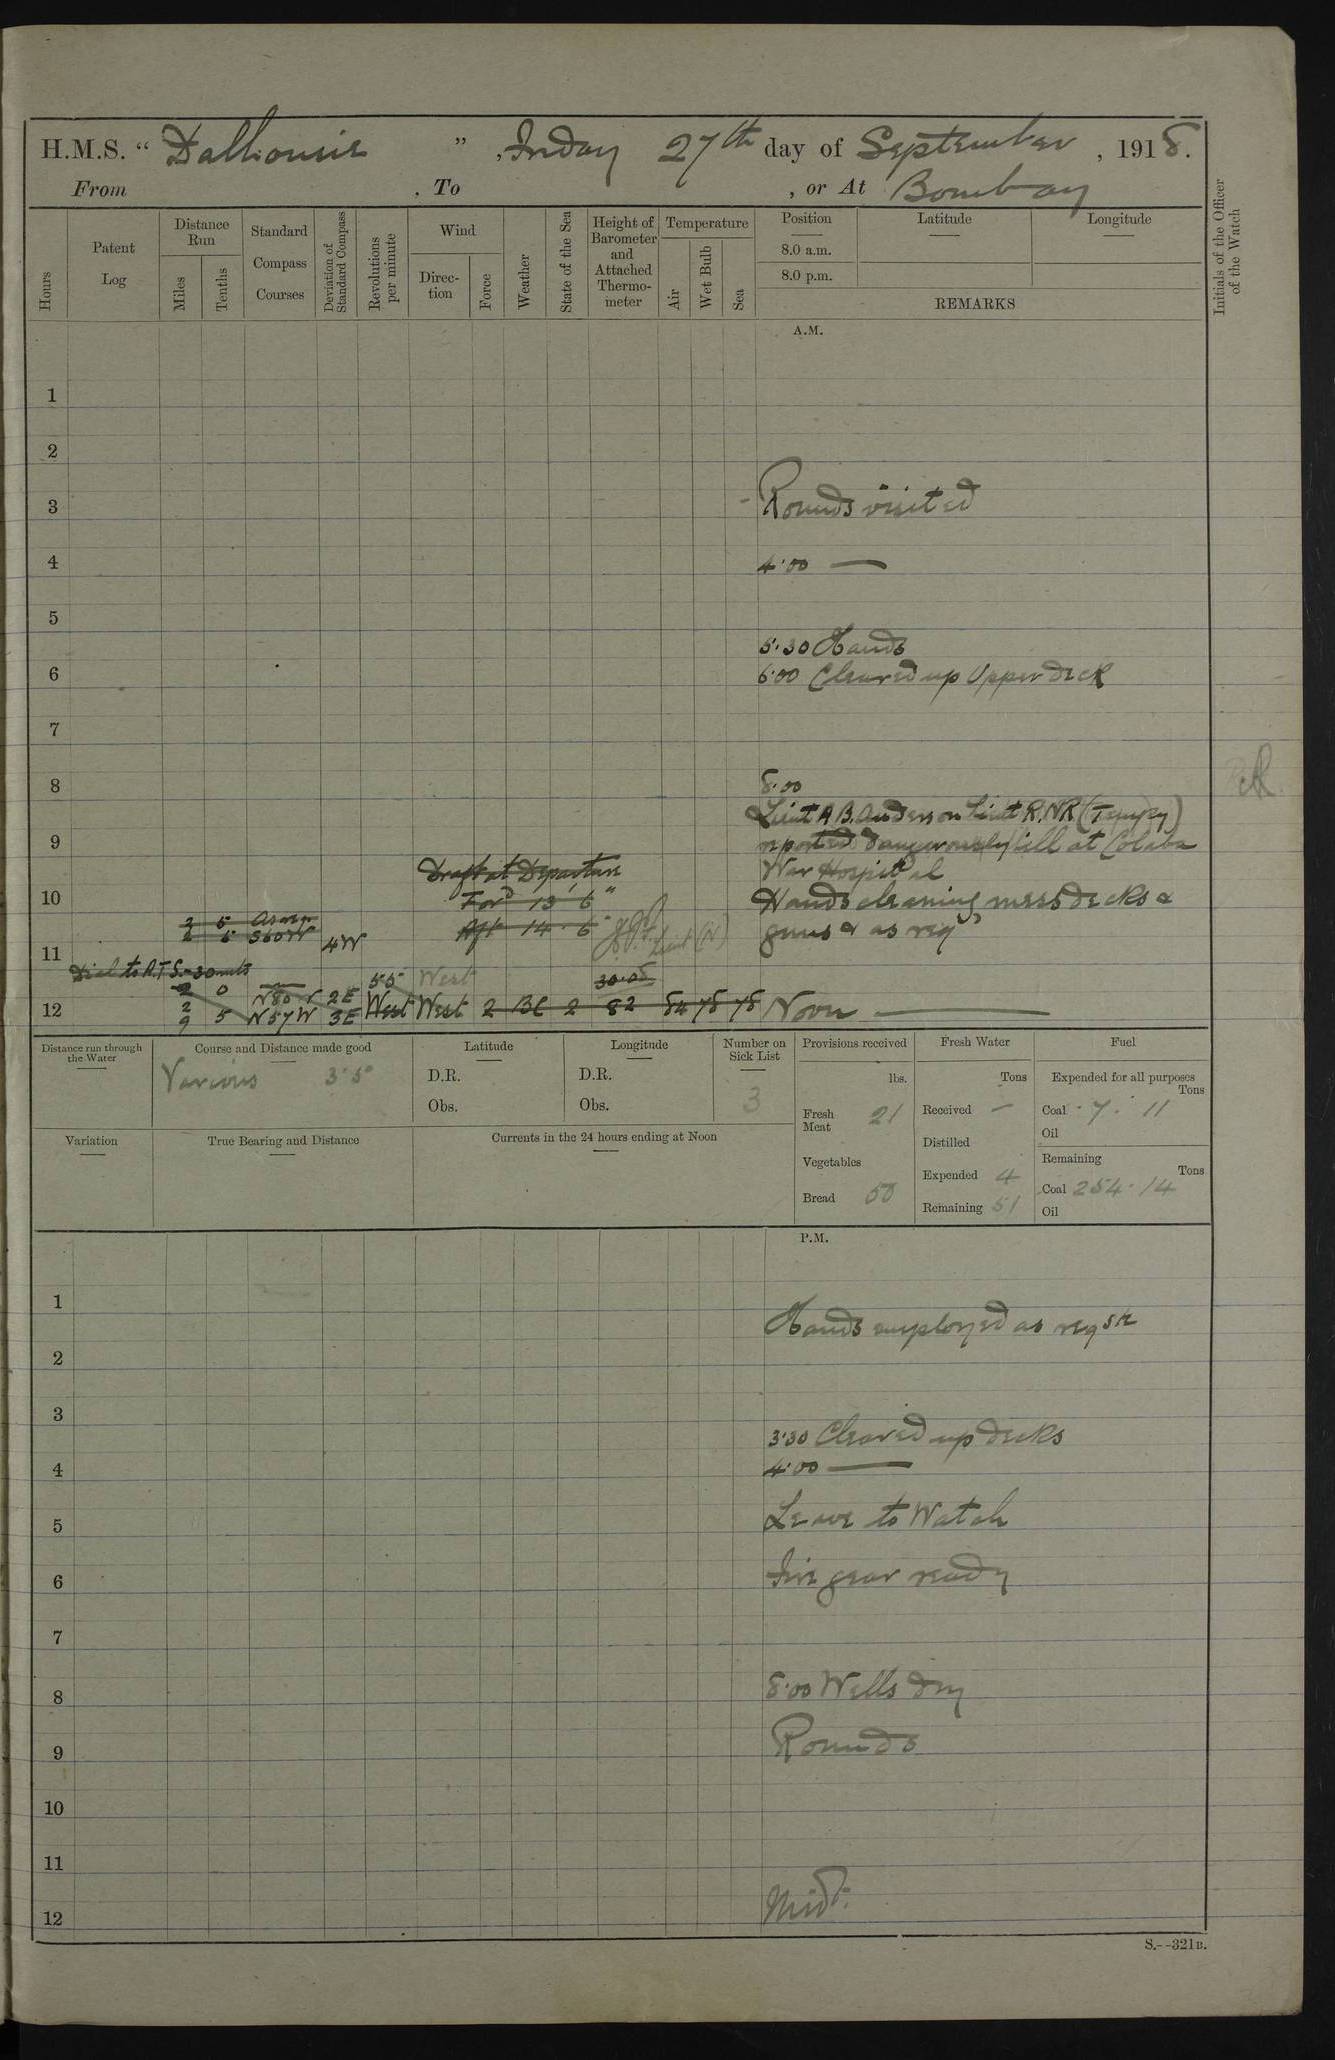 H.M.S. " Dalhousie " , Friday 27th day of September , 1918.
From . To , or At Bombay
Hours
Patent Log
Distance Run
Miles
Tenths
Standard Compass Courses
Deviation of Standard Compass
Revolutions per minute
Wind
Direc-tion
Force
Weather
State of the Sea
Height of Barometer and Attached Thermo-meter
Temperature
Air
Wet Bulb
Sea
Position
Latitude
Longitude
8.0 a.m.
8.0 p.m.
REMARKS
Initials of the Officer of the Watch
A.M.
1
2
3 Rounds visited
4 4.00 —
5
5.30 Hands
6 6.00 Cleared up Upper deck
7
8 8.00
Lieut A B. Anderson Lieut R.NR (Tempry)
9 reported dangerously ill at Colaba
Draft at Departure War Hospital
10 For'd 13' 6" Hands cleaning mess decks &
2 5
2 5 S60W 4W Aft 14' 6" Lieut (N) guns & as req
11
Dial to A.T.S. - 30 mts 55 West 30.08
2 0 N80W 2E
12 2 5 N57W 3E West West 2 BC 2 82 84 78 78 Noon —
9
Distance run through the Water
Course and Distance made good
Various 3.5
Latitude
D.R.
Obs.
Longitude
D.R.
Obs.
Number on Sick List
3
Provisions received
lbs.
Fresh Meat 21
Vegetables
Bread 50
Fresh Water
Tons
Received —
Distilled
Expended 4
Remaining 51
Fuel
Expended for all purposes
Tons
Coal 7. 11
Oil
Remaining
Tons
Coal 254.14
Oil
Variation
True Bearing and Distance
Currents in the 24 hours ending at Noon
P.M.
1
Hands employed as reqste
2
3
3.30 Cleared up decks
4 4.00 —
5 Leave to Watch
6 Fire gear ready
7
8 8.00 Wells dry
9 Rounds
10
11
12 Midt.
S.--321B.